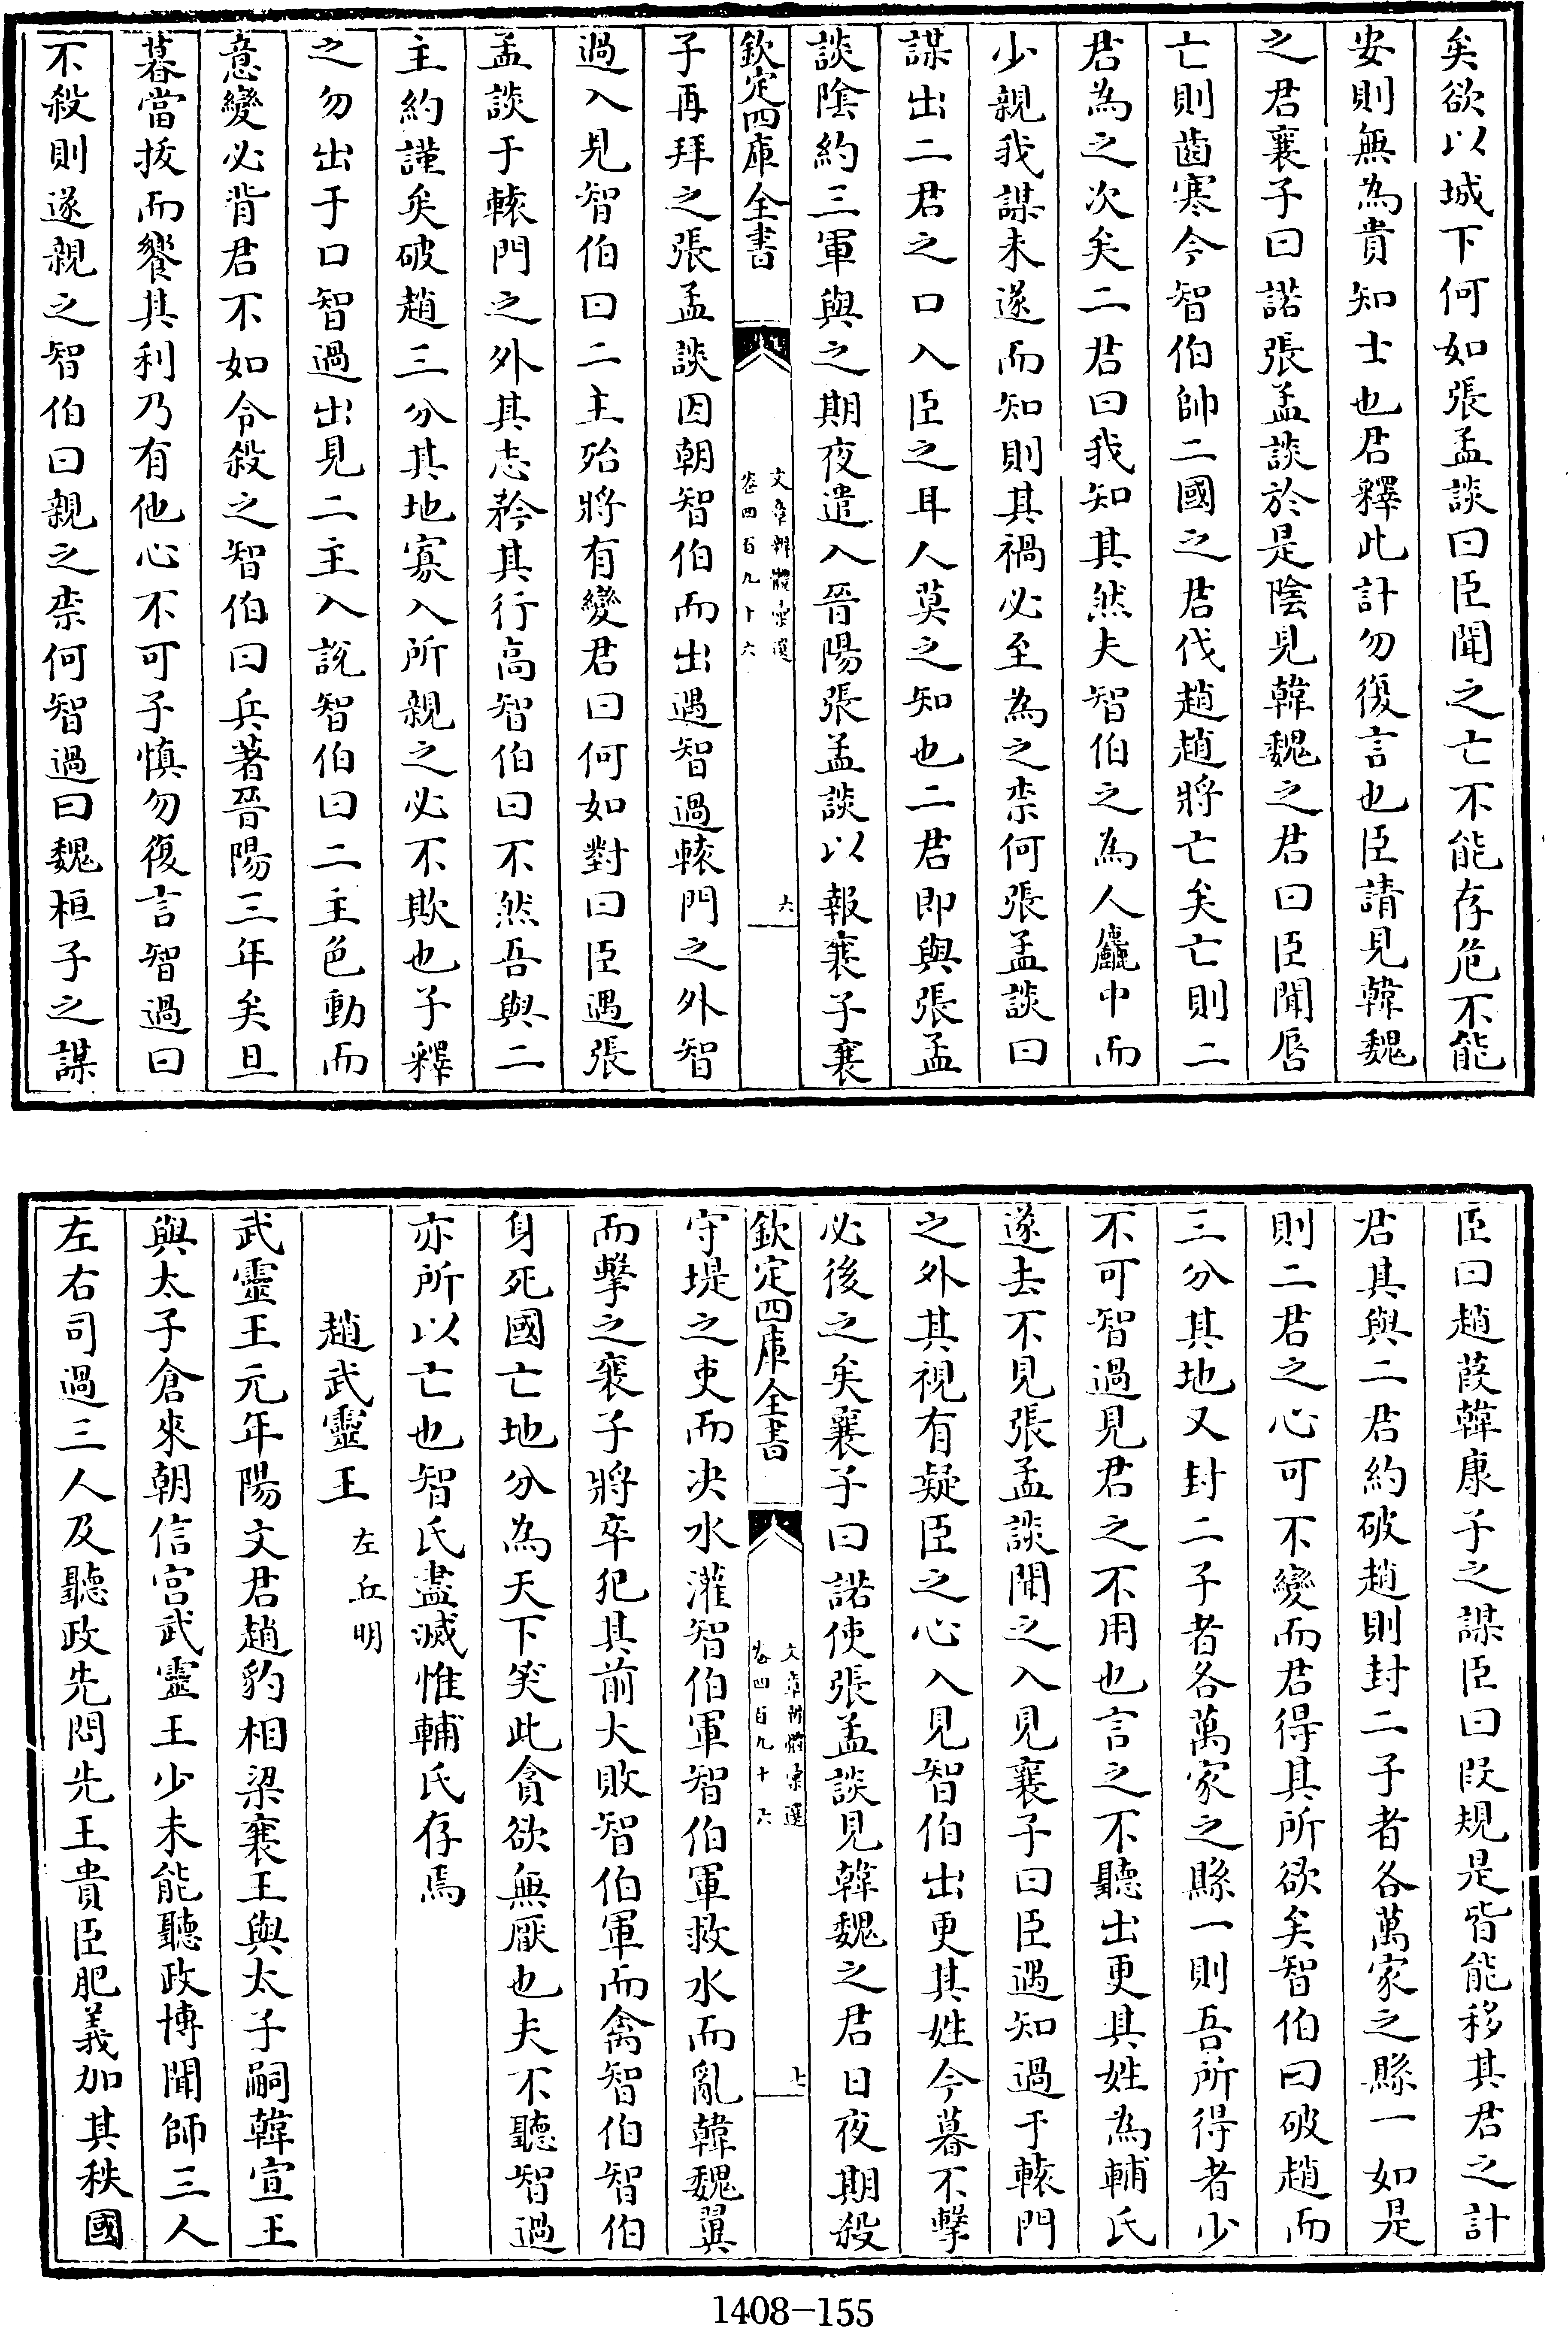 矣欲以城下何如張孟談曰臣聞之亡不能存危不能
安則無為貴知士也君釋此計勿復言也臣請見韓魏
之君襄子曰諾張孟談於是陰見韓魏之君曰臣聞脣
亡則齒寒今智伯帥二國之君伐趙趙將亡矣亡則二
君為之次矣二君曰我知其然夫智伯之為人麤中而
少親我謀未遂而知則其禍必至為之柰何張孟談曰
謀出二君之口入臣之耳人莫之知也二君即與張孟
談陰約三軍與之期夜遣入晉陽張孟談以報襄子襄
欽定四庫全書
文章辨體彙選
卷四百九十六
六
子再拜之張孟談因朝智伯而出遇智過轅門之外智
過入見智伯曰二主殆將有變君曰何如對曰臣遇張
孟談于轅門之外其志矜其行高智伯曰不然吾與二
主約謹矣破趙三分其地寡人所親之必不欺也子釋
之勿出于口智過出見二主入説智伯曰二主色動而
意變必背君不如令殺之智伯曰兵著晉陽三年矣旦
暮當拔而饗其利乃有他心不可子慎勿復言智過曰
不殺則遂親之智伯曰親之柰何智過曰魏桓子之謀
臣曰趙葭韓康子之謀臣曰叚規是皆能移其君之計
君其與二君約破趙則封二子者各萬家之縣一如是
則二君之心可不變而君得其所欲矣智伯曰破趙而
三分其地又封二子者各萬家之縣一則吾所得者少
不可智過見君之不用也言之不聽出更其姓為輔氏
遂去不見張孟談聞之入見襄子曰臣遇知過于轅門
之外其視有疑臣之心入見智伯出更其姓今暮不擊
必後之矣襄子曰諾使張孟談見韓魏之君日夜期殺
欽定四庫全書
文章辨體彙選
卷四百九十六
七
守堤之吏而决水灌智伯軍智伯軍救水而亂韓魏翼
而擊之襄子將卒犯其前大敗智伯軍而禽智伯智伯
身死國亡地分為天下笑此貪欲無厭也夫不聽智過
亦所以亡也智氏盡滅惟輔氏存焉
趙武靈王 左丘明
武靈王元年陽文君趙豹相梁襄王與太子嗣韓宣王
與太子倉來朝信宫武靈王少未能聽政博聞師三人
左右司過三人及聽政先問先王貴臣肥義加其秩國
1408-155